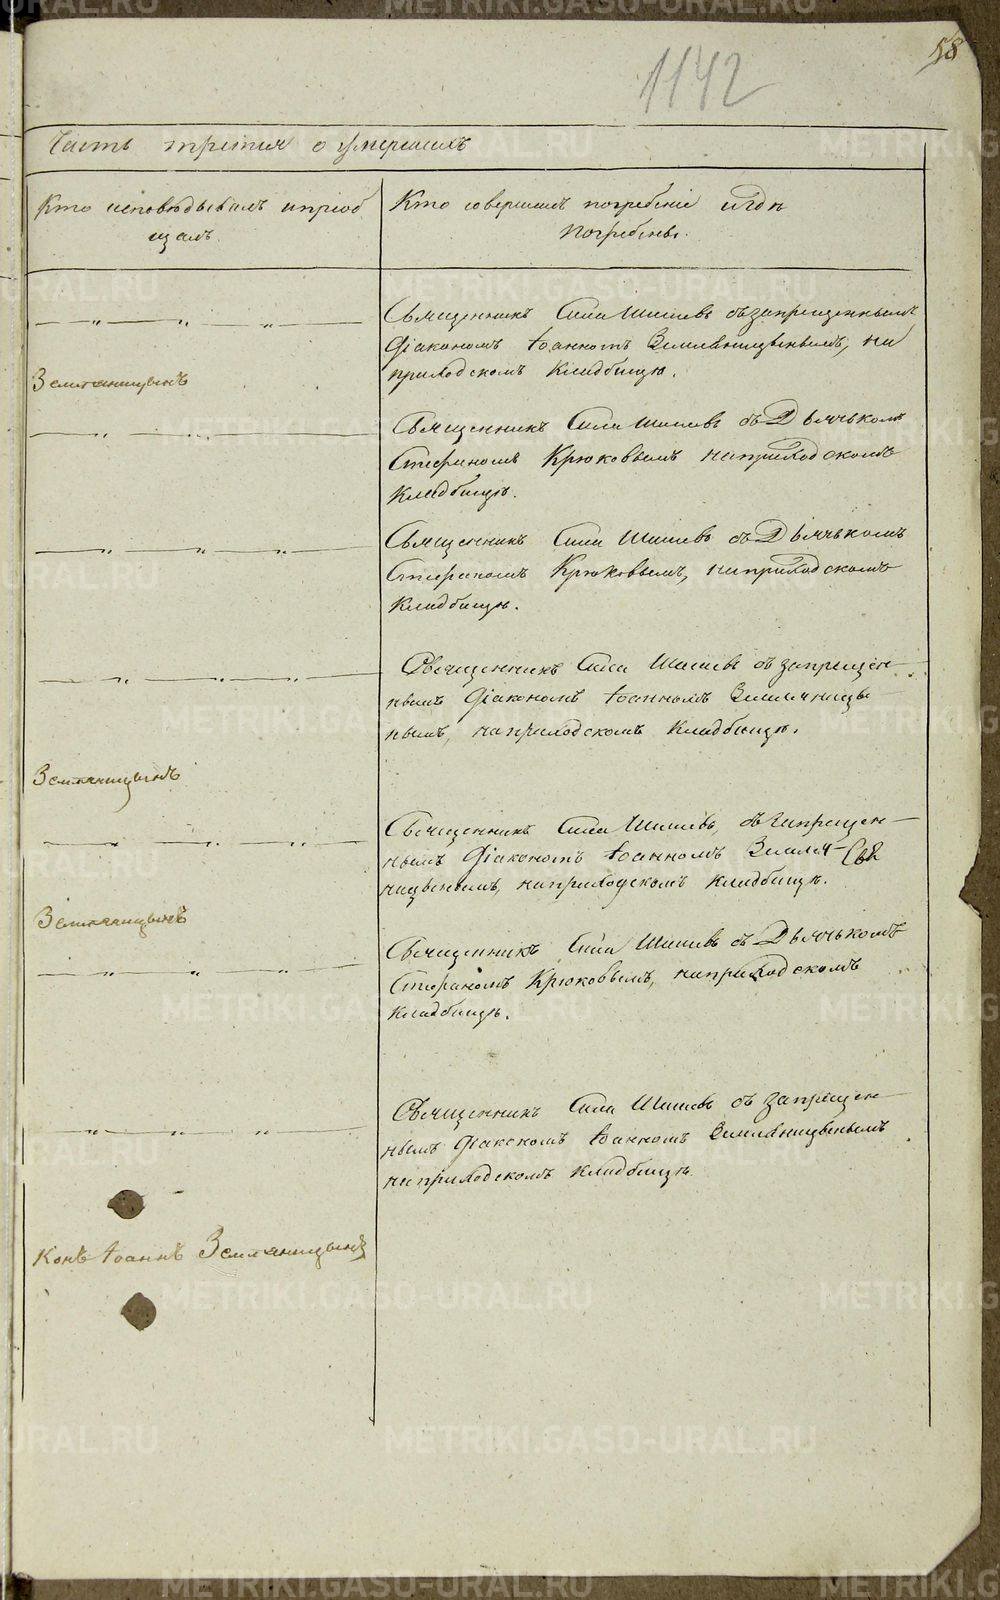 58
1142
Часть третія о умершихъ
Кто исповѣдывалъ и пріоб
щалъ.
Кто совершалъ погребеніе и гдѣ
погребены.
Священникъ Сила Шишевъ съ запрещеннымъ
діакономъ Іоанномъ Земляницынымъ, на
приходскомъ кладбищѣ.
Земляницынъ
Священникъ Сила Шишевъ съ Дьячькомъ
Стефаномъ Крюковымъ на приходскомъ
кладбищѣ.
Священникъ Сила Шишевъ съ Дьячькомъ
Стефаномъ Крюковымъ, на приходскомъ
кладбищѣ.
Священникъ Сила Шишевъ съ запрещен
нымъ діакономъ Іоанномъ Земляницы
нымъ, на приходскомъ кладбищѣ.
Земляницынъ
Священникъ Сила Шишевъ, съ запрещен
нымъ діакономъ Іоанномъ Земля
ницынымъ, на приходскомъ кладбищѣ.
Земляницынъ
Священникъ Сила Шишевъ съ Дьячькомъ
Стефаномъ Крюковымъ, на приходскомъ
кладбищѣ.
Священникъ Сила Шишевъ съ запрещен
нымъ діакономъ Іоанномъ Земляницынымъ
на приходскомъ кладбищѣ.
конъ Іоаннъ Земляницынъ
METRIKI.GASO-URAL.RU